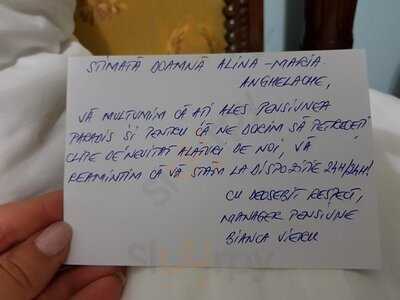 STIMATĂ DOAMNĂ ALINA-MARIA
ANGHELACHE,
VĂ MULTUMIM CĂ ATI ALES PENSIUNEA
PARADIS ȘI PENTRU CĂ NE DORIM SĂ PETRECEȚI
CLIPE DE NEUITAT ALĂTURI DE NOI, VĂ
REAMINTIM CĂ VĂ STĂM LA DISPOZIȚIE 24H/24H!
CU DEOSEBIT RESPECT,
MANAGER PENSIUNE
BIANCA VIERU